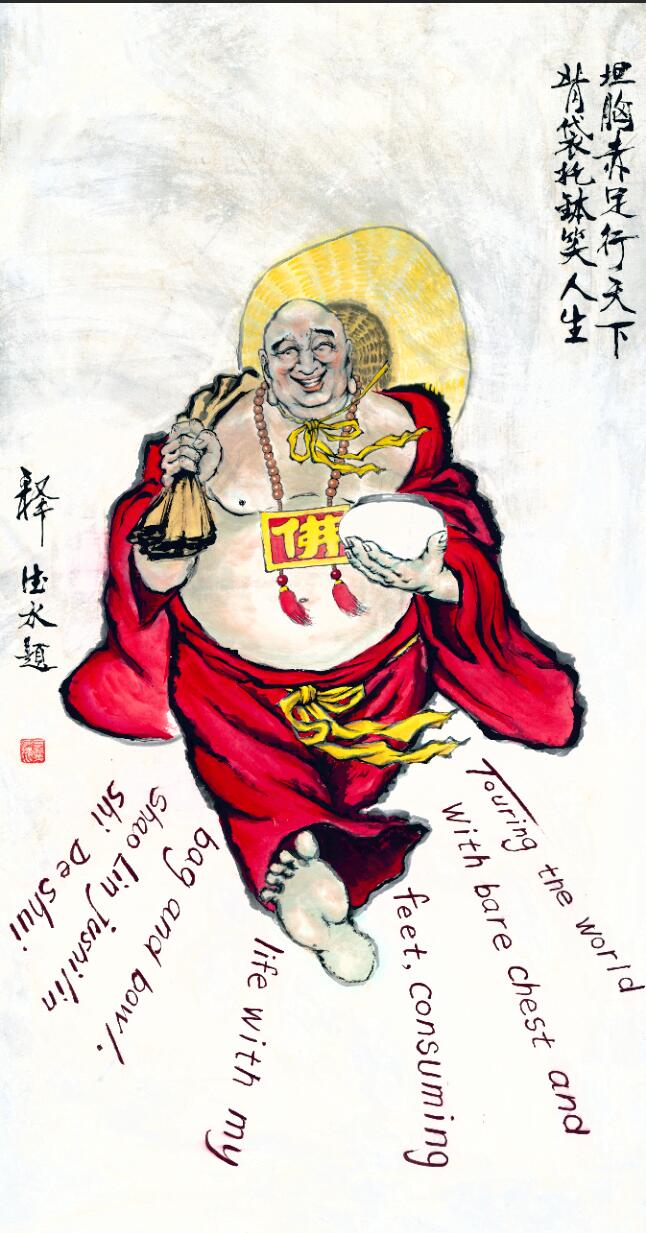 坦胸赤足行天下
背袋托鉢笑人生
佛
釋
德水題
Touring the world
with bare chest and
feet, consuming
life with my
bag and bowl.
Shao Lin jusnilin
Shi De Shui